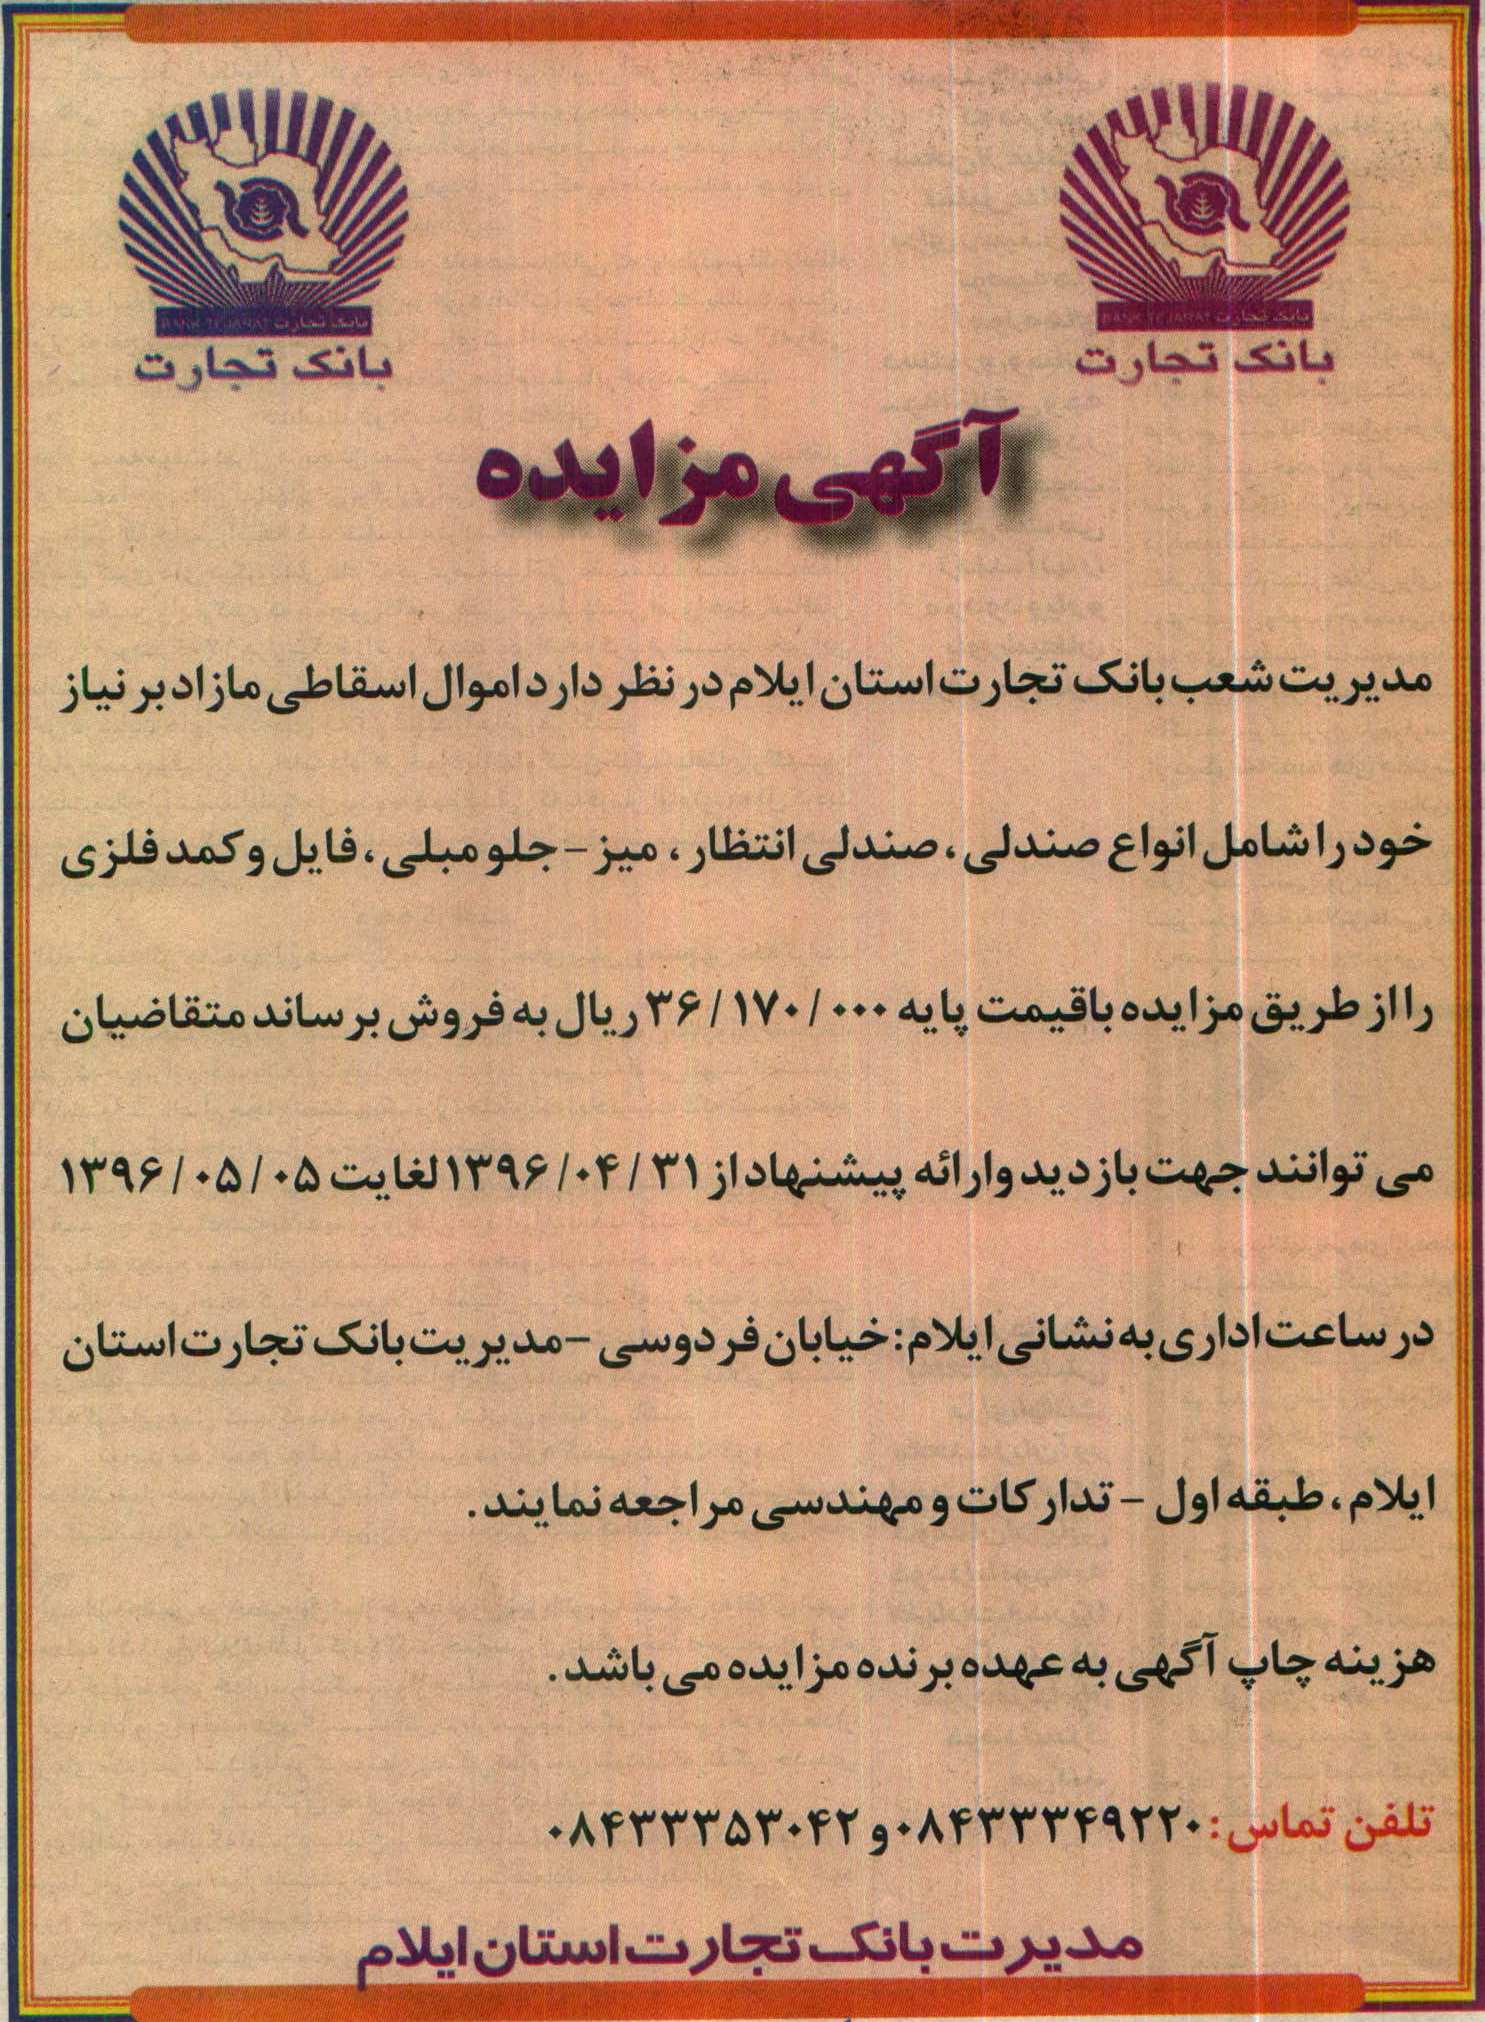 بانک تجارت BANK TEJARAT
بانک تجارت
بانک تجارت BANK TEJARAT
بانک تجارت
آگهی مزایده
مدیریت شعب بانک تجارت استان ایلام در نظر دارد اموال اسقاطی مازاد بر نیاز
خود را شامل انواع صندلی ، صندلی انتظار ، میز - جلو مبلی ، فایل و کمد فلزی
را از طریق مزایده با قیمت پایه ۳۶/۱۷۰/۰۰۰ ریال به فروش برساند متقاضیان
می توانند جهت بازدید و ارائه پیشنهاد از ۱۳۹۶/۰۴/۳۱ لغایت ۱۳۹۶/۰۵/۰۵
در ساعت اداری به نشانی ایلام : خیابان فردوسی - مدیریت بانک تجارت استان
ایلام ، طبقه اول - تدارکات و مهندسی مراجعه نمایند .
هزینه چاپ آگهی به عهده برنده مزایده می باشد .
تلفن تماس : ۰۸۴۳۳۳۴۹۲۲۰ و ۰۸۴۳۳۳۵۳۰۴۲
مدیرت بانک تجارت استان ایلام